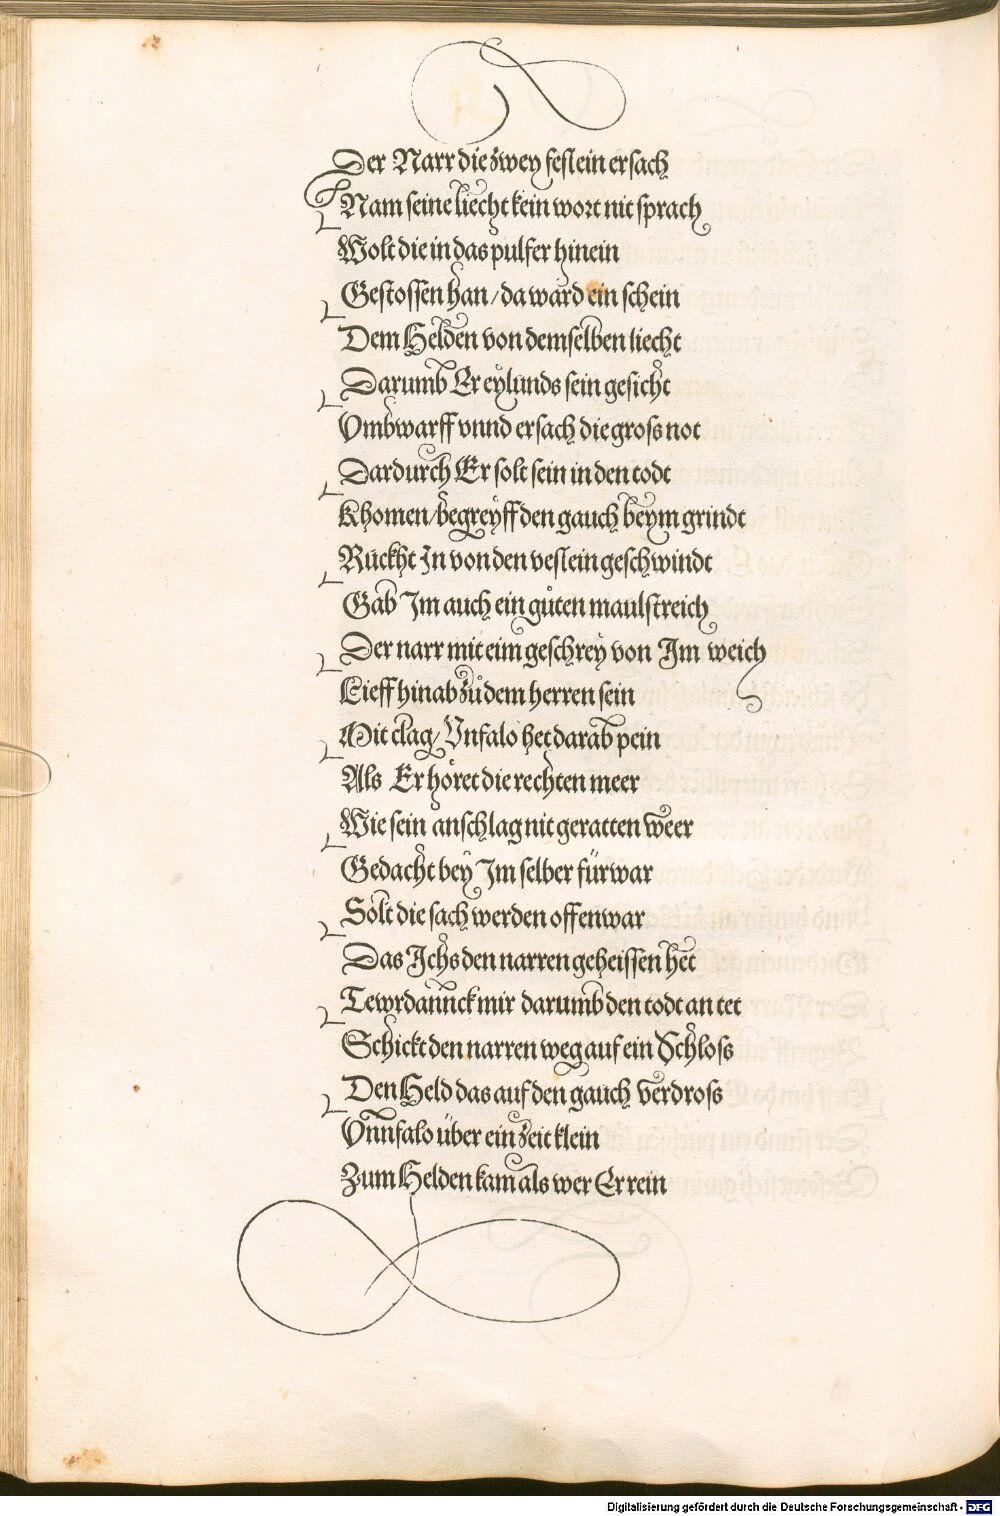 Der Narr die zwey feslein ersach
Nam seine liecht kein wort nit sprach
Wolt die in das pulfer hinein
Gestossen han / da ward ein schein
Dem Helden von demselben liecht
Darumb Er eylunds sein gesicht
Vmbwarff vnnd ersach die gross not
Dardurch Er solt sein in den todt
Khomen / begreyff den gauch beym grindt
Ruckht In von den veslein geschwindt
Gab Im auch ein gůten maulstreich
Der narr mit eim geschrey von Im weich
Lieff hinab zů dem herren sein
Mit clag / Vnfalo het darab pein
Als Er höret die rechten meer
Wie sein anschlag nit geratten weer
Gedacht bey Im selber fürwar
Solt die sach werden offenwar
Das Ichs den narren geheissen het
Tewrdannck mir darumb den todt an tet
Schickt den narren weg auf ein Schloss
Den Held das auf den gauch verdross
Vnnfalo über ein zeit klein
Zum Helden kam als wer Er rein
Digitalisierung gefördert durch die Deutsche Forschungsgemeinschaft - DFG